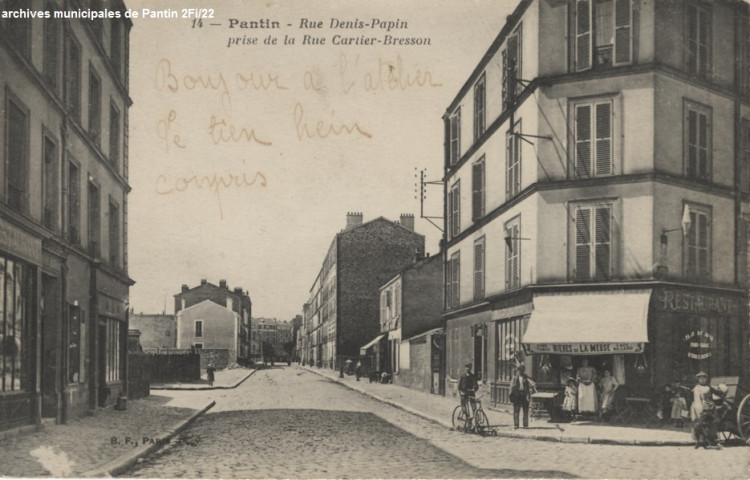 archives municipales de Pantin 2Fi/22
14 — Pantin - Rue Denis-Papin
prise de la Rue Cartier-Bresson
Bonjour a l'atelier
Je tien hein
compris
BIÈRES DE LA MEUSE
RESTAURANT
B. F., PARIS